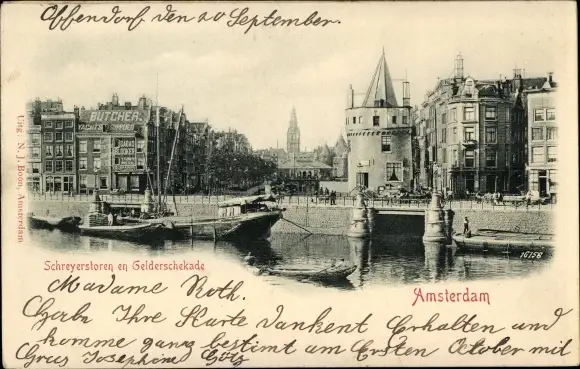 Offendorf den 20 September.
BUTCHER
YACHTS SUPPLIED
Uitg. N. J. Boon, Amsterdam
16158
Schreyerstoren en Gelderschekade
Amsterdam
Madame Roth.
Habe Ihre Karte dankent Erhalten und
komme ganz bestimt am Ersten October mit
Grus Josephine Götz